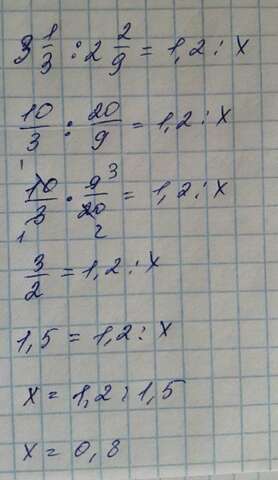 3 1/3 : 2 2/9 = 1,2 : x
10/3 : 20/9 = 1,2 : x
1 3
10/3 · 9/20 = 1,2 : x
1 2
3/2 = 1,2 : x
1,5 = 1,2 : x
x = 1,2 : 1,5
x = 0,8